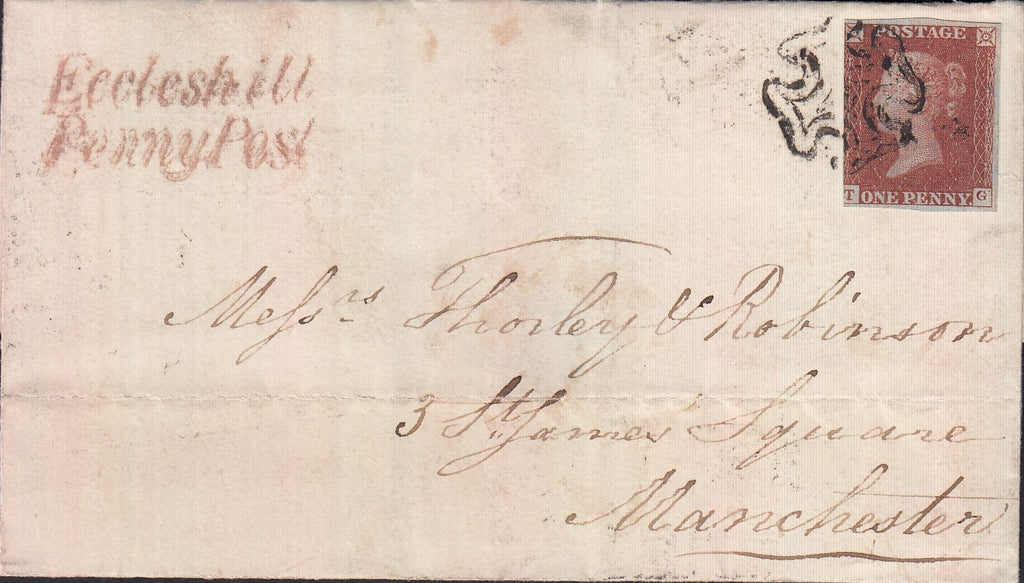 Eccleshill
Penny Post
POSTAGE
T ONE PENNY. G
Messrs Thorley & Robinson
3 St. James' Square
Manchester